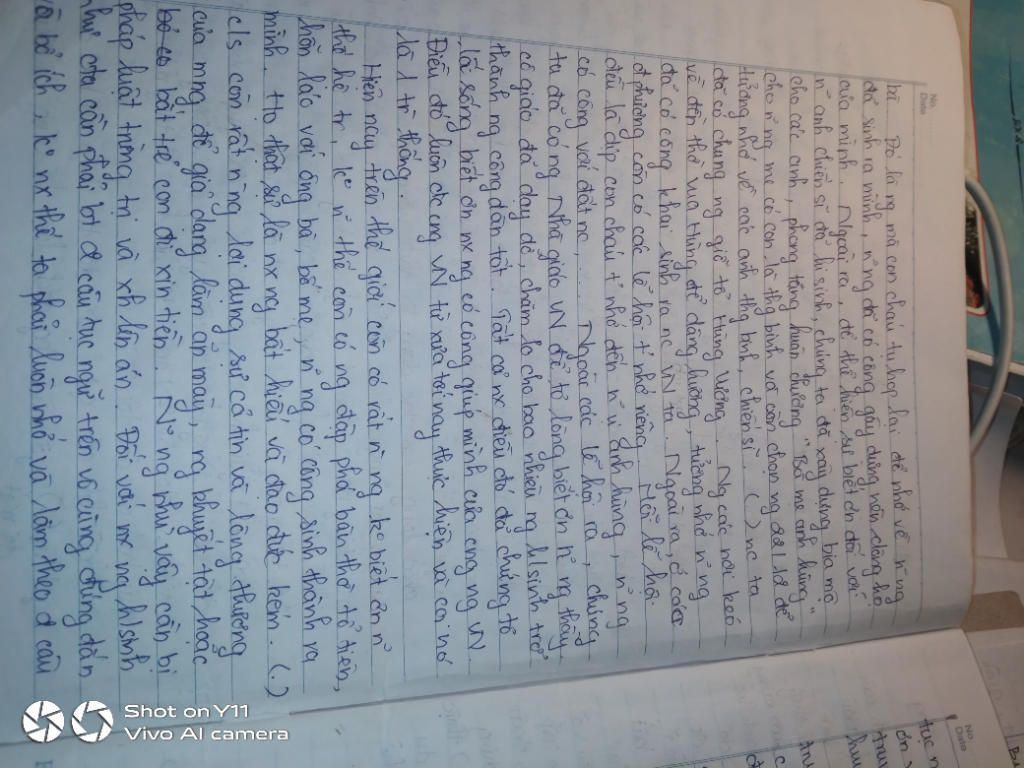 No.
Date
bì... Đó là ng mà con cháu tụ họp lại để nhớ về n~ ng
đã sinh ra mình, n~ ng đã có công gây dựng nên dòng họ
của mình. Ngoài ra, để thể hiện sự biết ơn đối với
n~ anh chiến sĩ đã hi sinh, chúng ta đã xây dựng bia mộ
cho các anh, phong tặng huân chương "Bà mẹ anh hùng"
cho n~ ng mẹ có con là thg binh và còn chọn ng 27/7 là để
tưởng nhớ về các anh thg binh, chiến sĩ. (.) nc ta
đã có chung ng giỗ tổ Hùng Vương. Ng các nơi kéo
về đền thờ vua Hùng để dâng hương, tưởng nhớ n~ ng
đã có công khai sinh ra nc VN ta. Ngoài ra, ở các
địa phương còn có các lễ hội t' nhớ riêng. Mỗi lễ hội
đều là dịp con cháu t' nhớ đến n~ vị anh hùng, n~ ng
có công với đất nc,... Ngoài các lễ hội ra, chúng
ta đã có ng Nhà giáo VN để tỏ lòng biết ơn n~ ng thầy
cô giáo đã dạy dỗ, chăm lo cho bao nhiêu ng h/sinh trở
thành ng công dân tốt. Tất cả n~ điều đó đã chứng tỏ
lối sống biết ơn n~ ng có công giúp mình của cng ng VN.
Điều đó luôn đc cng VN từ xưa tới nay thực hiện và coi nó
là 1 tr' thống.
Hiện nay trên thế giới còn có rất n` ng ko biết ơn n~
thế hệ tr', k° n~ thế còn có ng đập phá bàn thờ tổ tiên,
hỗn láo với ông bà, bố mẹ, n~ ng có công sinh thành ra
mình. Họ thật sự là n~ ng bất hiếu và đạo đức kém. (.)
c/s còn rất n` ng lợi dụng sự cả tin và lòng thương
của mng để giả dạng làm ăn mày, ng khuyết tật hoặc
bắt trẻ con đi xin tiền. N~ ng như vậy cần bị
pháp luật trừng trị và xh lên án. Đối với mx ng h/sinh
như cta cần phải bt đc câu tục ngữ trên vô cùng đúng đắn
và bổ ích, k° nx thế ta phải luôn nhớ và làm theo đc câu
Shot on Y11
Vivo AI camera
No.
Date
tục n